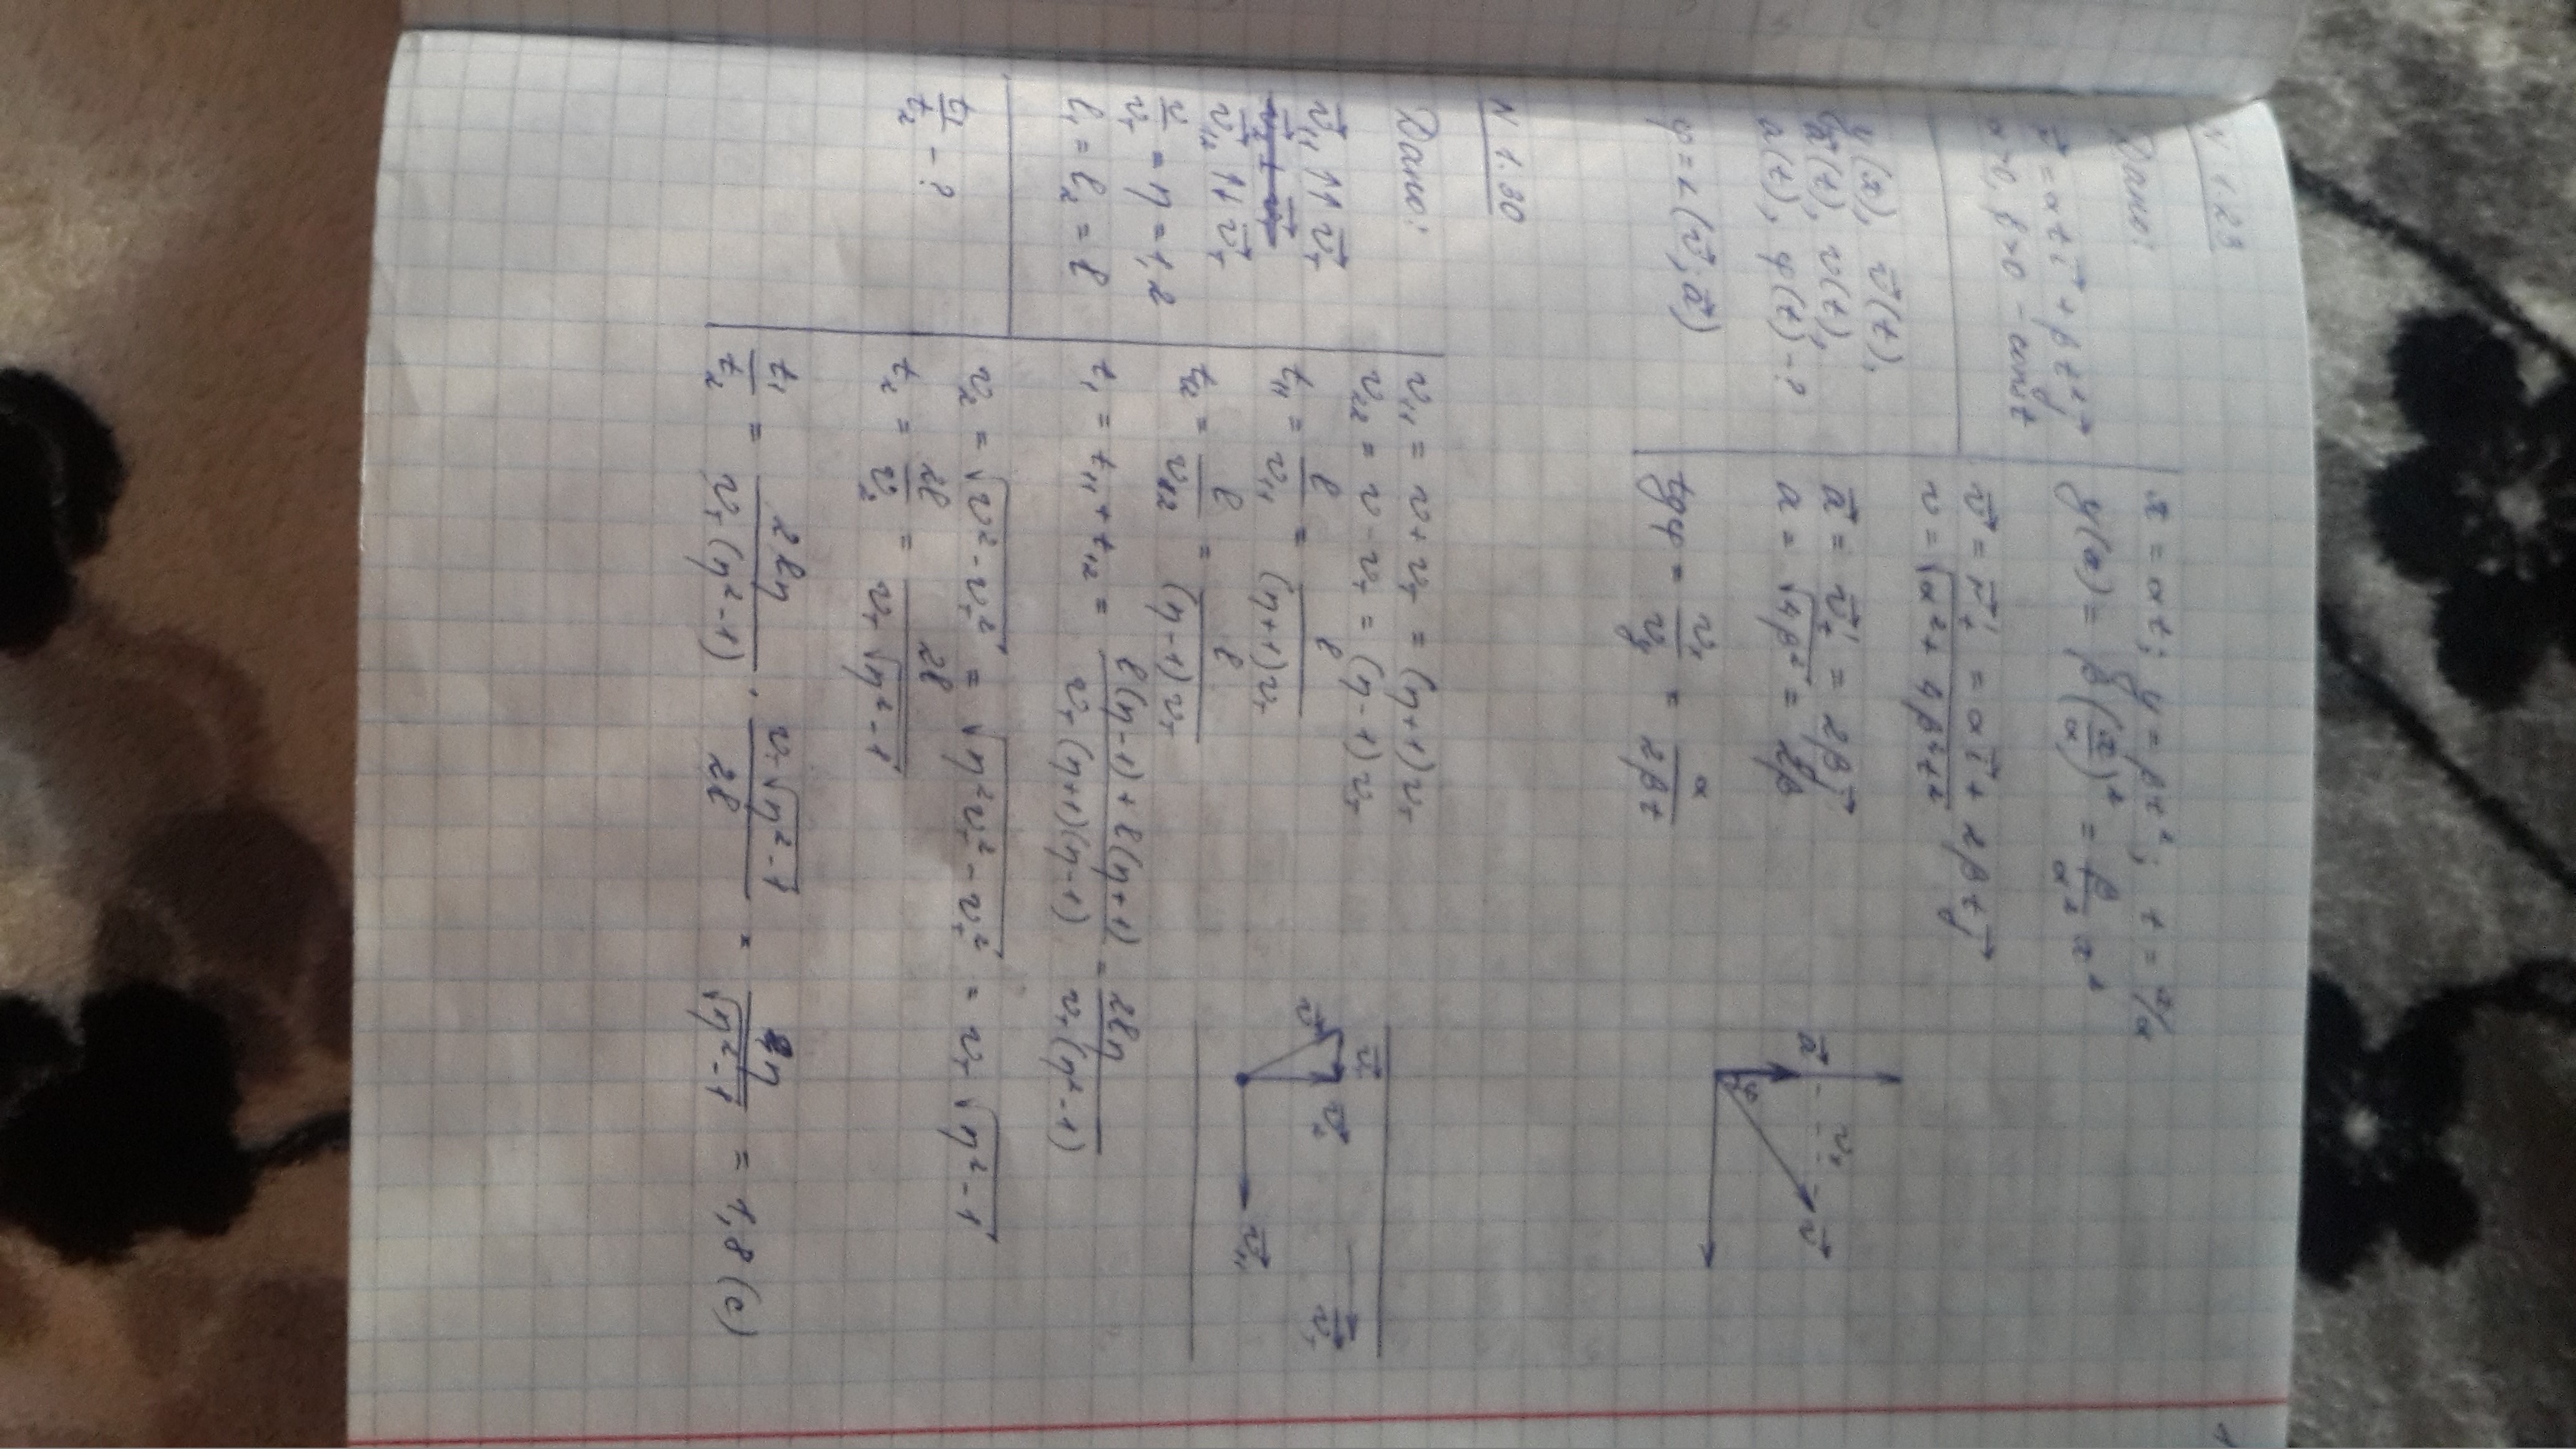 N 1.29
Дано:
r⃗ = αt i⃗ + βt² j⃗
α>0, β>0 - const
y(x), v⃗(t),
a⃗(t), v(t),
a(t), φ(t) - ?
φ = ∠(v⃗; a⃗)
x = αt; y = βt²; t = x/α
y(x) = β(x/α)² = β/α² x²
v⃗ = r⃗'t = α i⃗ + 2βt j⃗
v = √(α² + 4β²t²)
a⃗ = v⃗'t = 2β j⃗
a = √(4β²) = 2β
tgφ = vx/vy = α/(2βt)
a⃗ φ vx v⃗
N 1.30
Дано:
v⃗11 ↑↑ v⃗т
v⃗12 ↑↓ v⃗т
v/vт = η = 1,2
l1 = l2 = l
t1/t2 - ?
v11 = v + vт = (η+1)vт
v12 = v - vт = (η-1)vт
t11 = l/v11 = l/((η+1)vт)
t12 = l/v12 = l/((η-1)vт)
t1 = t11 + t12 = (l(η-1) + l(η+1))/(vт(η+1)(η-1)) = 2lη/(vт(η²-1))
v2 = √(v² - vт²) = √(η²vт² - vт²) = vт √(η²-1)
t2 = 2l/v2 = 2l/(vт√(η²-1))
t1/t2 = 2lη/(vт(η²-1)) · vт√(η²-1)/2l = η/√(η²-1) = 1,8 (с)
v⃗ v⃗т v⃗2 v⃗11 v⃗т